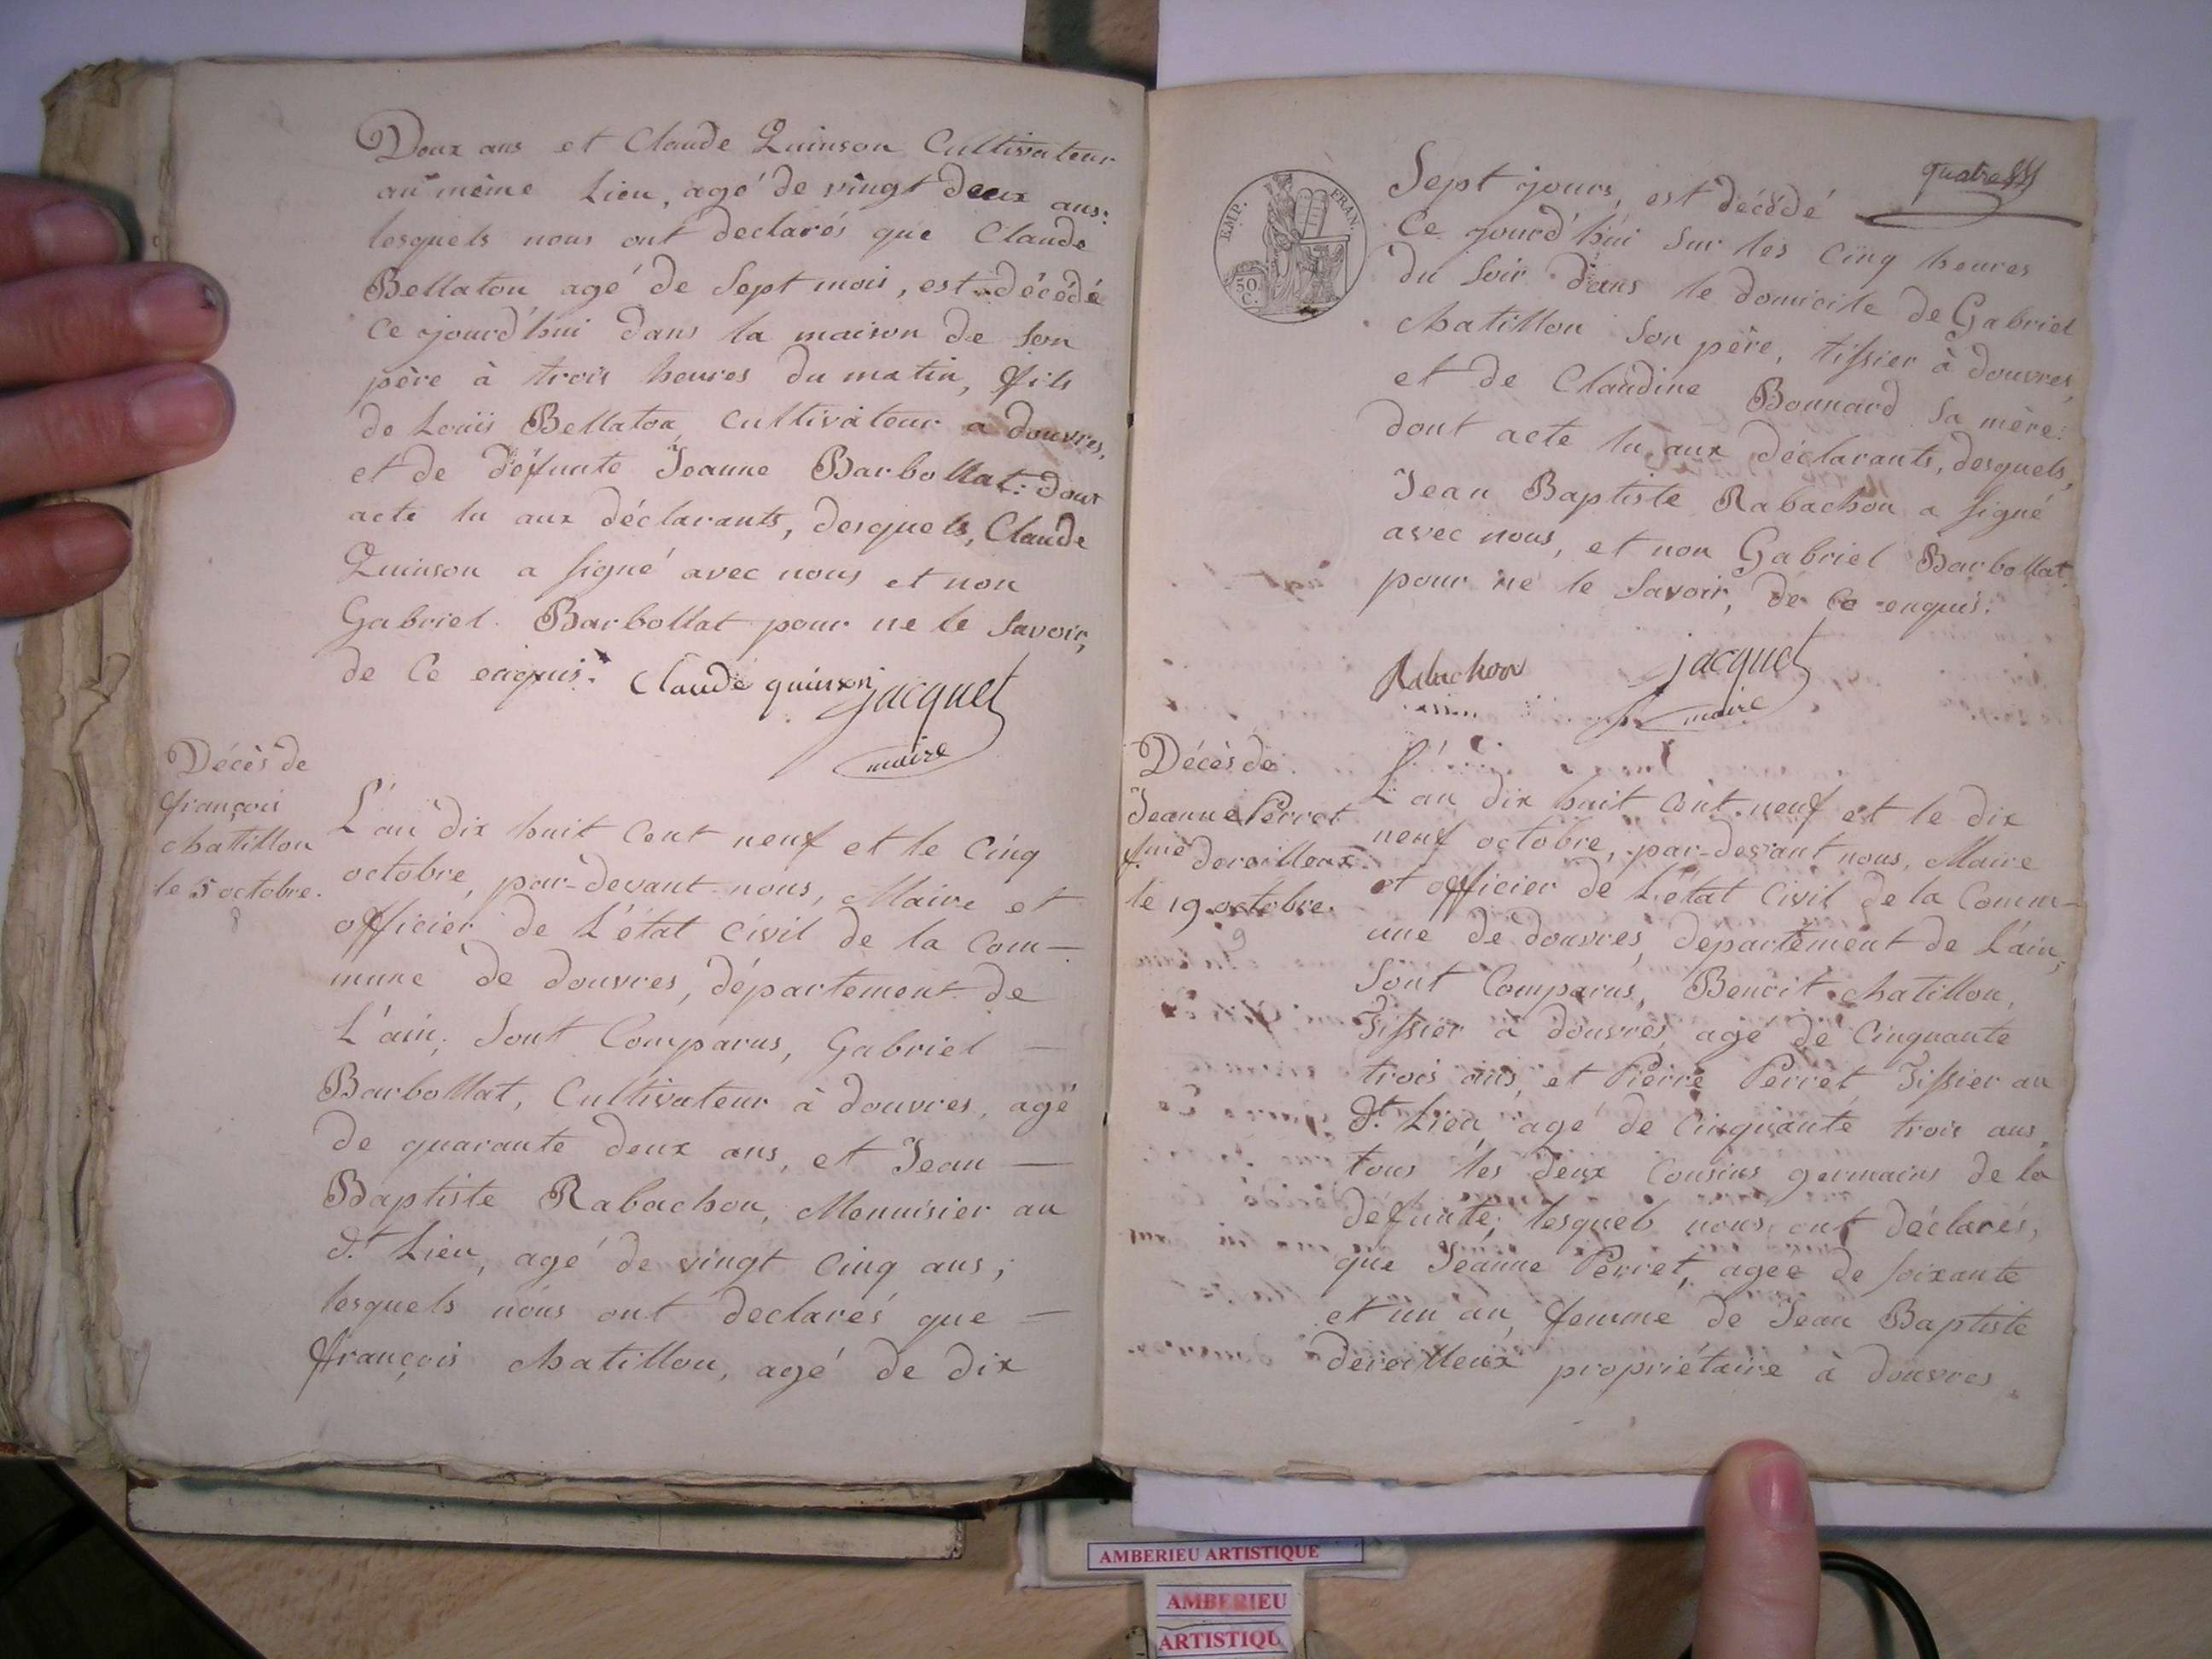 Deux ans et Claude Quinson Cultivateur
au même Lieu, agé de vingt deux ans:
lesquels nous ont declarés que Claude
Bellaton agé de Sept mois, est décédé
ce jourd'hui dans la maison de Son
père à trois heures du matin, fils
de Louis Bellaton, cultivateur a douvres,
et de défunte Jeanne Barbollat: dont
acte lu aux déclarants, desquels, Claude
Quinson a signé avec nous et non
Gabriel Barbollat pour ne le Savoir,
de Ce enquis. Claude quinson jacquet
maire
Décès de
françois
chatillon
le 5 octobre.
8
L'an dix huit Cent neuf et le Cinq
octobre, par-devant nous, Maire et
officier de L'état Civil de la Com—
mune de douvres, département de
L'ain, Sont Comparus, Gabriel —
Barbollat, Cultivateur à douvres, agé
de quarante deux ans, et Jean —
Baptiste Rabachon, Menuisier au
d.t Lieu, agé de vingt Cinq ans;
lesquels nous ont declarés que —
françois chatillon, agé de dix
EMP. FRAN.
50
C.
quatre
Sept jours, est décédé
Ce jourd'hui Sur les Cinq heures
du Soir dans le domicile de Gabriel
chatillon Son père, tissier à douvres,
et de Claudine Bonnard Sa mère:
dont acte lu aux déclarants, desquels,
Jean Baptiste Rabachon a signé
avec nous, et non Gabriel Barbollat
pour ne le Savoir, de Ce enquis.
Rabachon jacquet
maire
Décès de
Jeanne Perret
f.me dereilleux
le 19 octobre.
9
L'an dix huit Cent neuf et le dix
neuf octobre, par-devant nous, Maire
et officier de L'état Civil de la Comm—
une de douvres, departement de L'ain,
Sont Comparus, Benoit chatillon,
Tissier à douvres, agé de Cinquante
trois ans, et Pierre Perret Tissier au
d.t Lieu, agé de Cinquante trois ans,
tous les deux Cousins germains de la
défunte; lesquels nous ont déclarés,
que Jeanne Perret, agée de soixante
et un an, femme de Jean Baptiste
dereilleux propriétaire à douvres
AMBERIEU ARTISTIQUE
AMBERIEU
ARTISTIQU